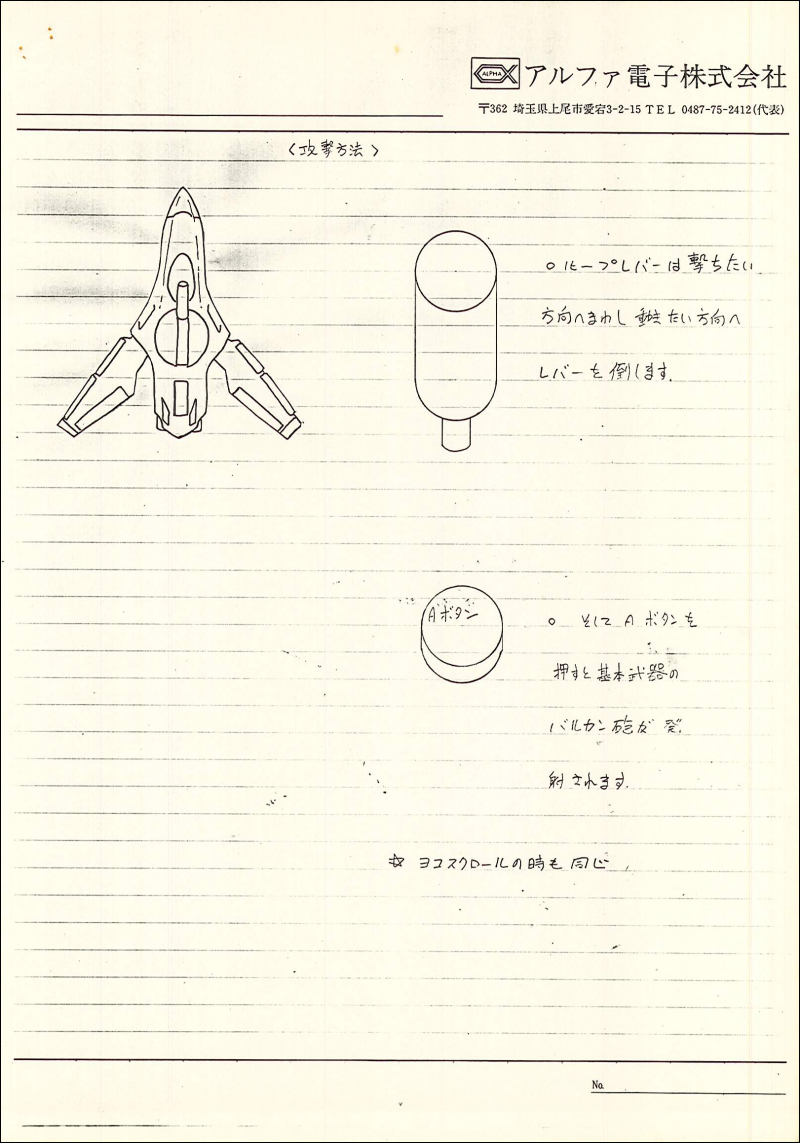 ALPHA アルファ電子株式会社
〒362 埼玉県上尾市愛宕3-2-15 TEL 0487-75-2412(代表)
〈攻撃方法〉
○ ループレバーは撃ちたい
方向へまわし動きたい方向へ
レバーを倒します.
Aボタン
○ そして A ボタンを
押すと基本武器の
バルカン砲が発
射されます.
☆ ヨコスクロールの時も同じ
No.